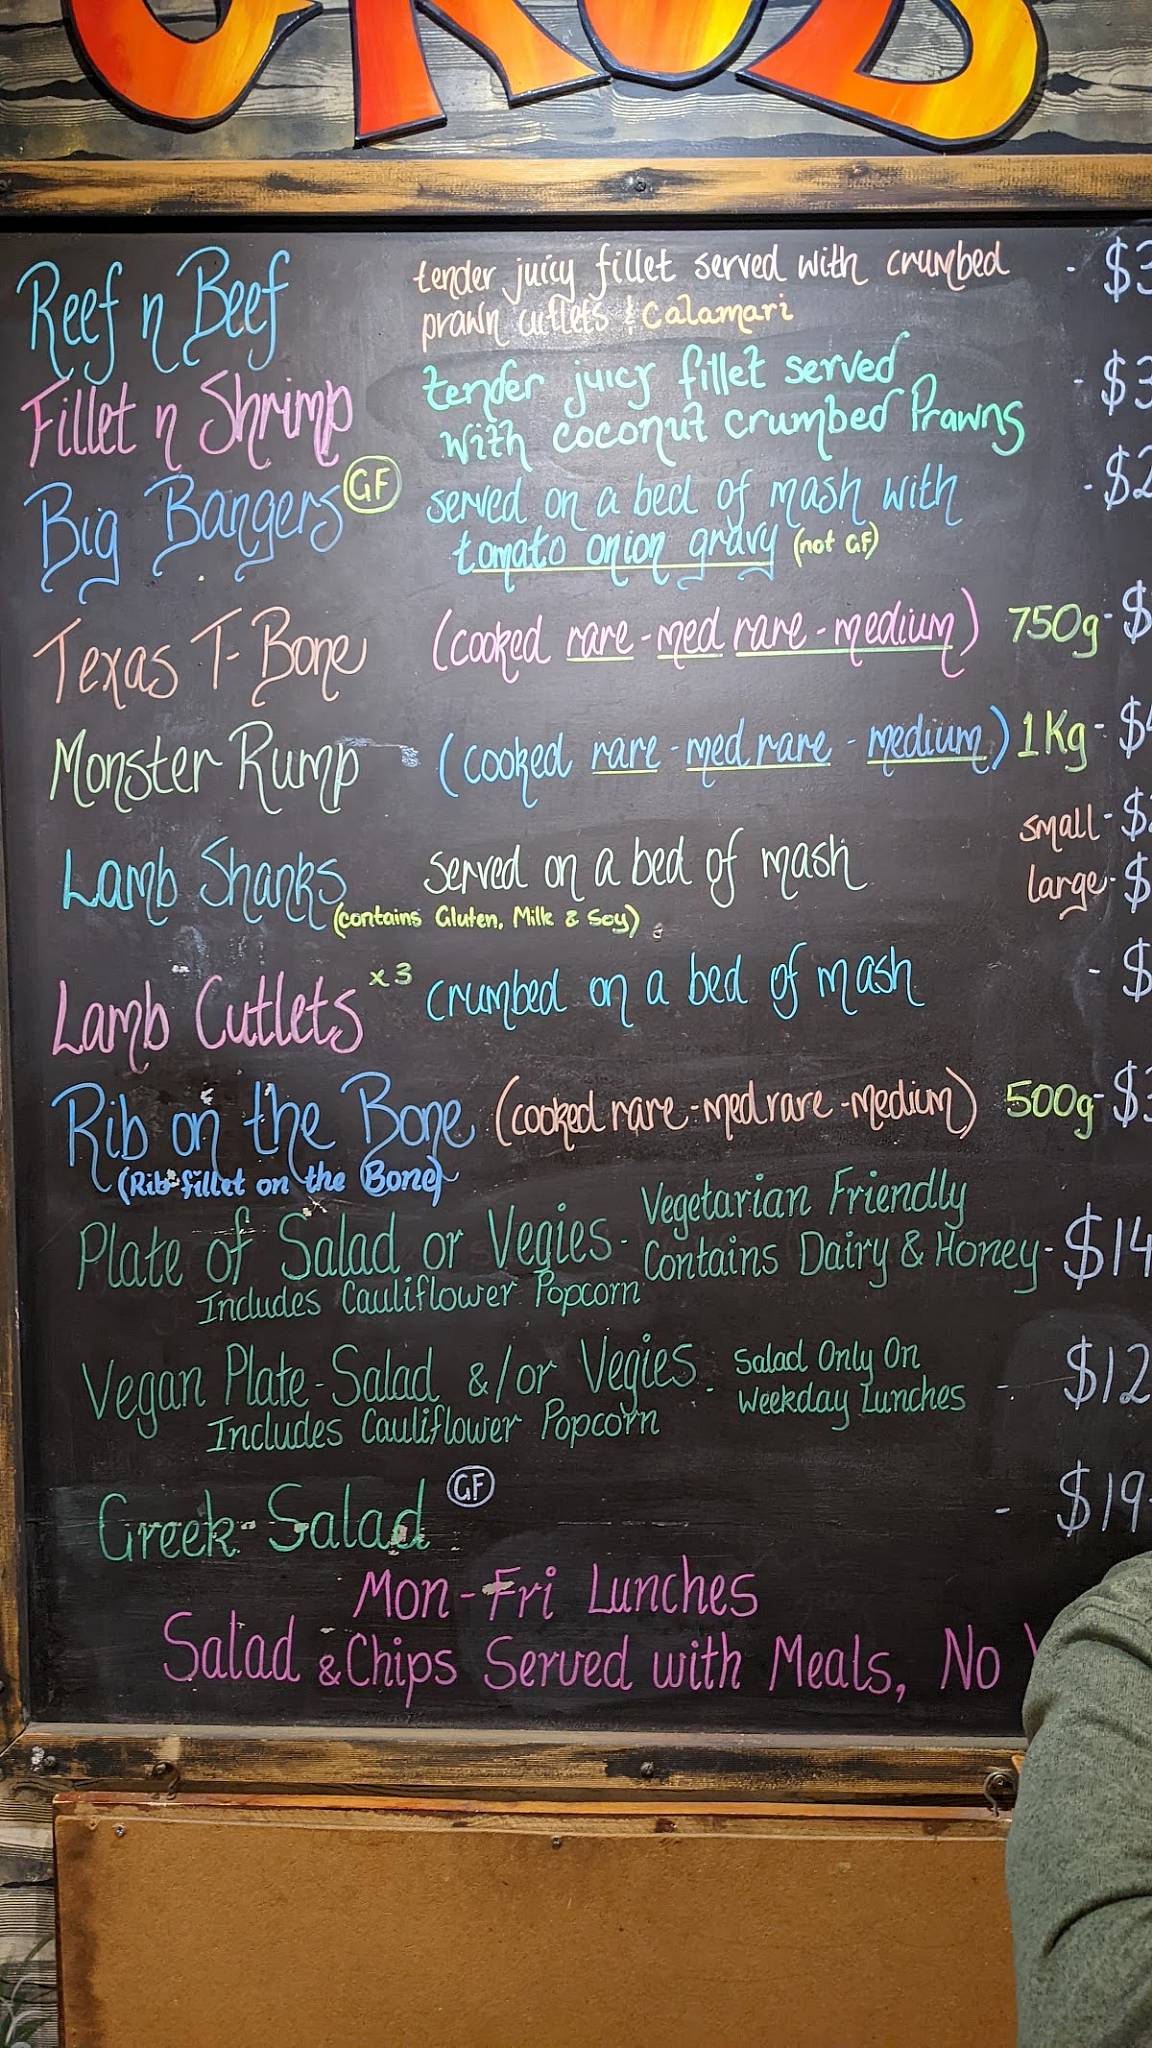 GRUB
Reef n Beef tender juicy fillet served with crumbed - $3
prawn cutlets & Calamari
Fillet n Shrimp tender juicy fillet served - $3
with coconut crumbed Prawns
Big Bangers GF served on a bed of mash with - $2
tomato onion gravy (not GF)
Texas T-Bone (cooked rare - med rare - medium) 750g - $
Monster Rump (cooked rare - med rare - medium) 1Kg - $4
small - $
Lamb Shanks served on a bed of mash
large - $
(contains Gluten, Milk & Soy)
Lamb Cutlets x3 crumbed on a bed of mash - $
Rib on the Bone (cooked rare - med rare - medium) 500g - $3
(Rib fillet on the Bone)
Plate of Salad or Vegies - Vegetarian Friendly
Contains Dairy & Honey - $14
Includes Cauliflower Popcorn
Vegan Plate - Salad &/or Vegies - Salad Only On
Weekday Lunches - $12
Includes Cauliflower Popcorn
Greek Salad GF - $19
Mon - Fri Lunches
Salad & Chips Served with Meals, No